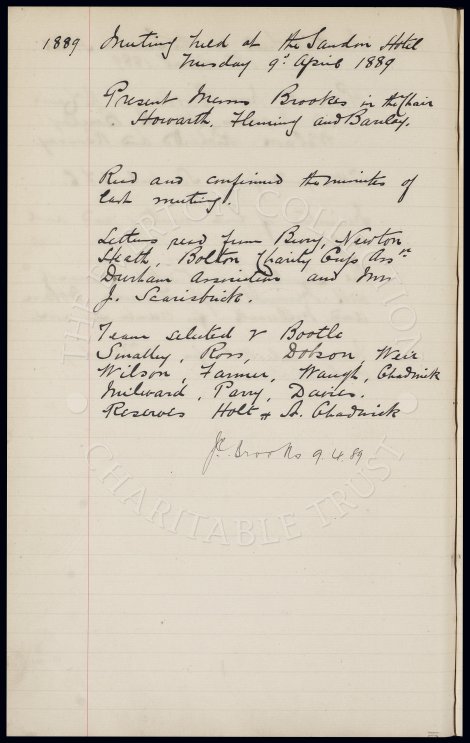 1889 Meeting held at the Sandon Hotel
Tuesday 9th April 1889
Present Messrs Brookes in the Chair
Howarth, Fleming and Barclay.
Read and confirmed the minutes of
last meeting.
Letters read from Bury, Newton
Heath, Bolton Charity Cup Assn
Durham Association and Mr
J. Scarisbrick.
Team selected v Bootle
Smalley, Ross, Dobson, Weir
Wilson, Farmer, Waugh, Chadwick
Milward, Parry, Davies.
Reserves Holt & A. Chadwick
Brooks 9.4.89
THE EVERTON COLLECTION
CHARITABLE TRUST